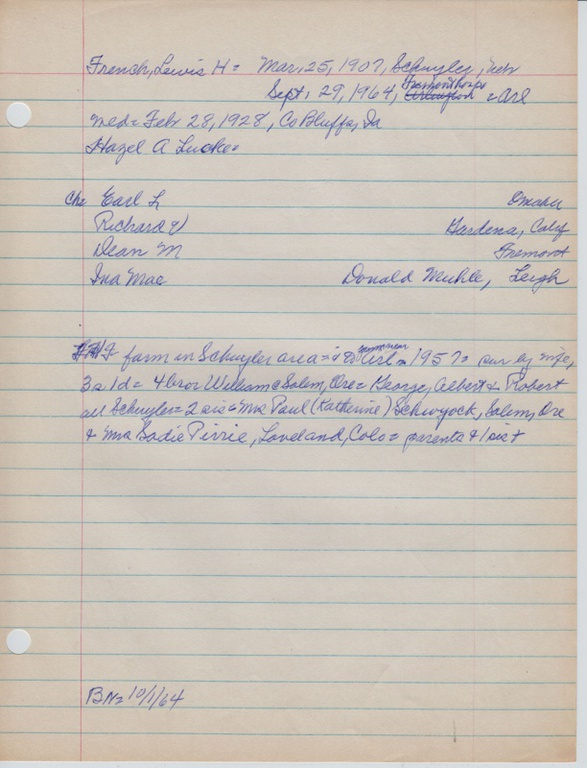 French, Lewis H = Mar, 25, 1907, Schuyler, Neb
Fremont Hosps
Sept, 29, 1964, Arlington = Arl
med = Feb 28, 1928, Co Bluffs, Ia
Hazel A Lucke =
Chi Earl L Omaha
Richard V Gardena, Calif
Dean M Fremont
Ina Mae Donald Muhle, Leigh
farm in Schuyler area = Arl = 1957 = sur by wife,
3 s 1 d = 4 bros William = Salem, Ore = George, Albert & Robert
all Schuyler = 2 sis = Mrs Paul (Katherine) Schwyock, Salem, Ore
& Mrs Sadie Pirrie, Loveland, Colo = parents & 1 sis +
BN = 10/1/64